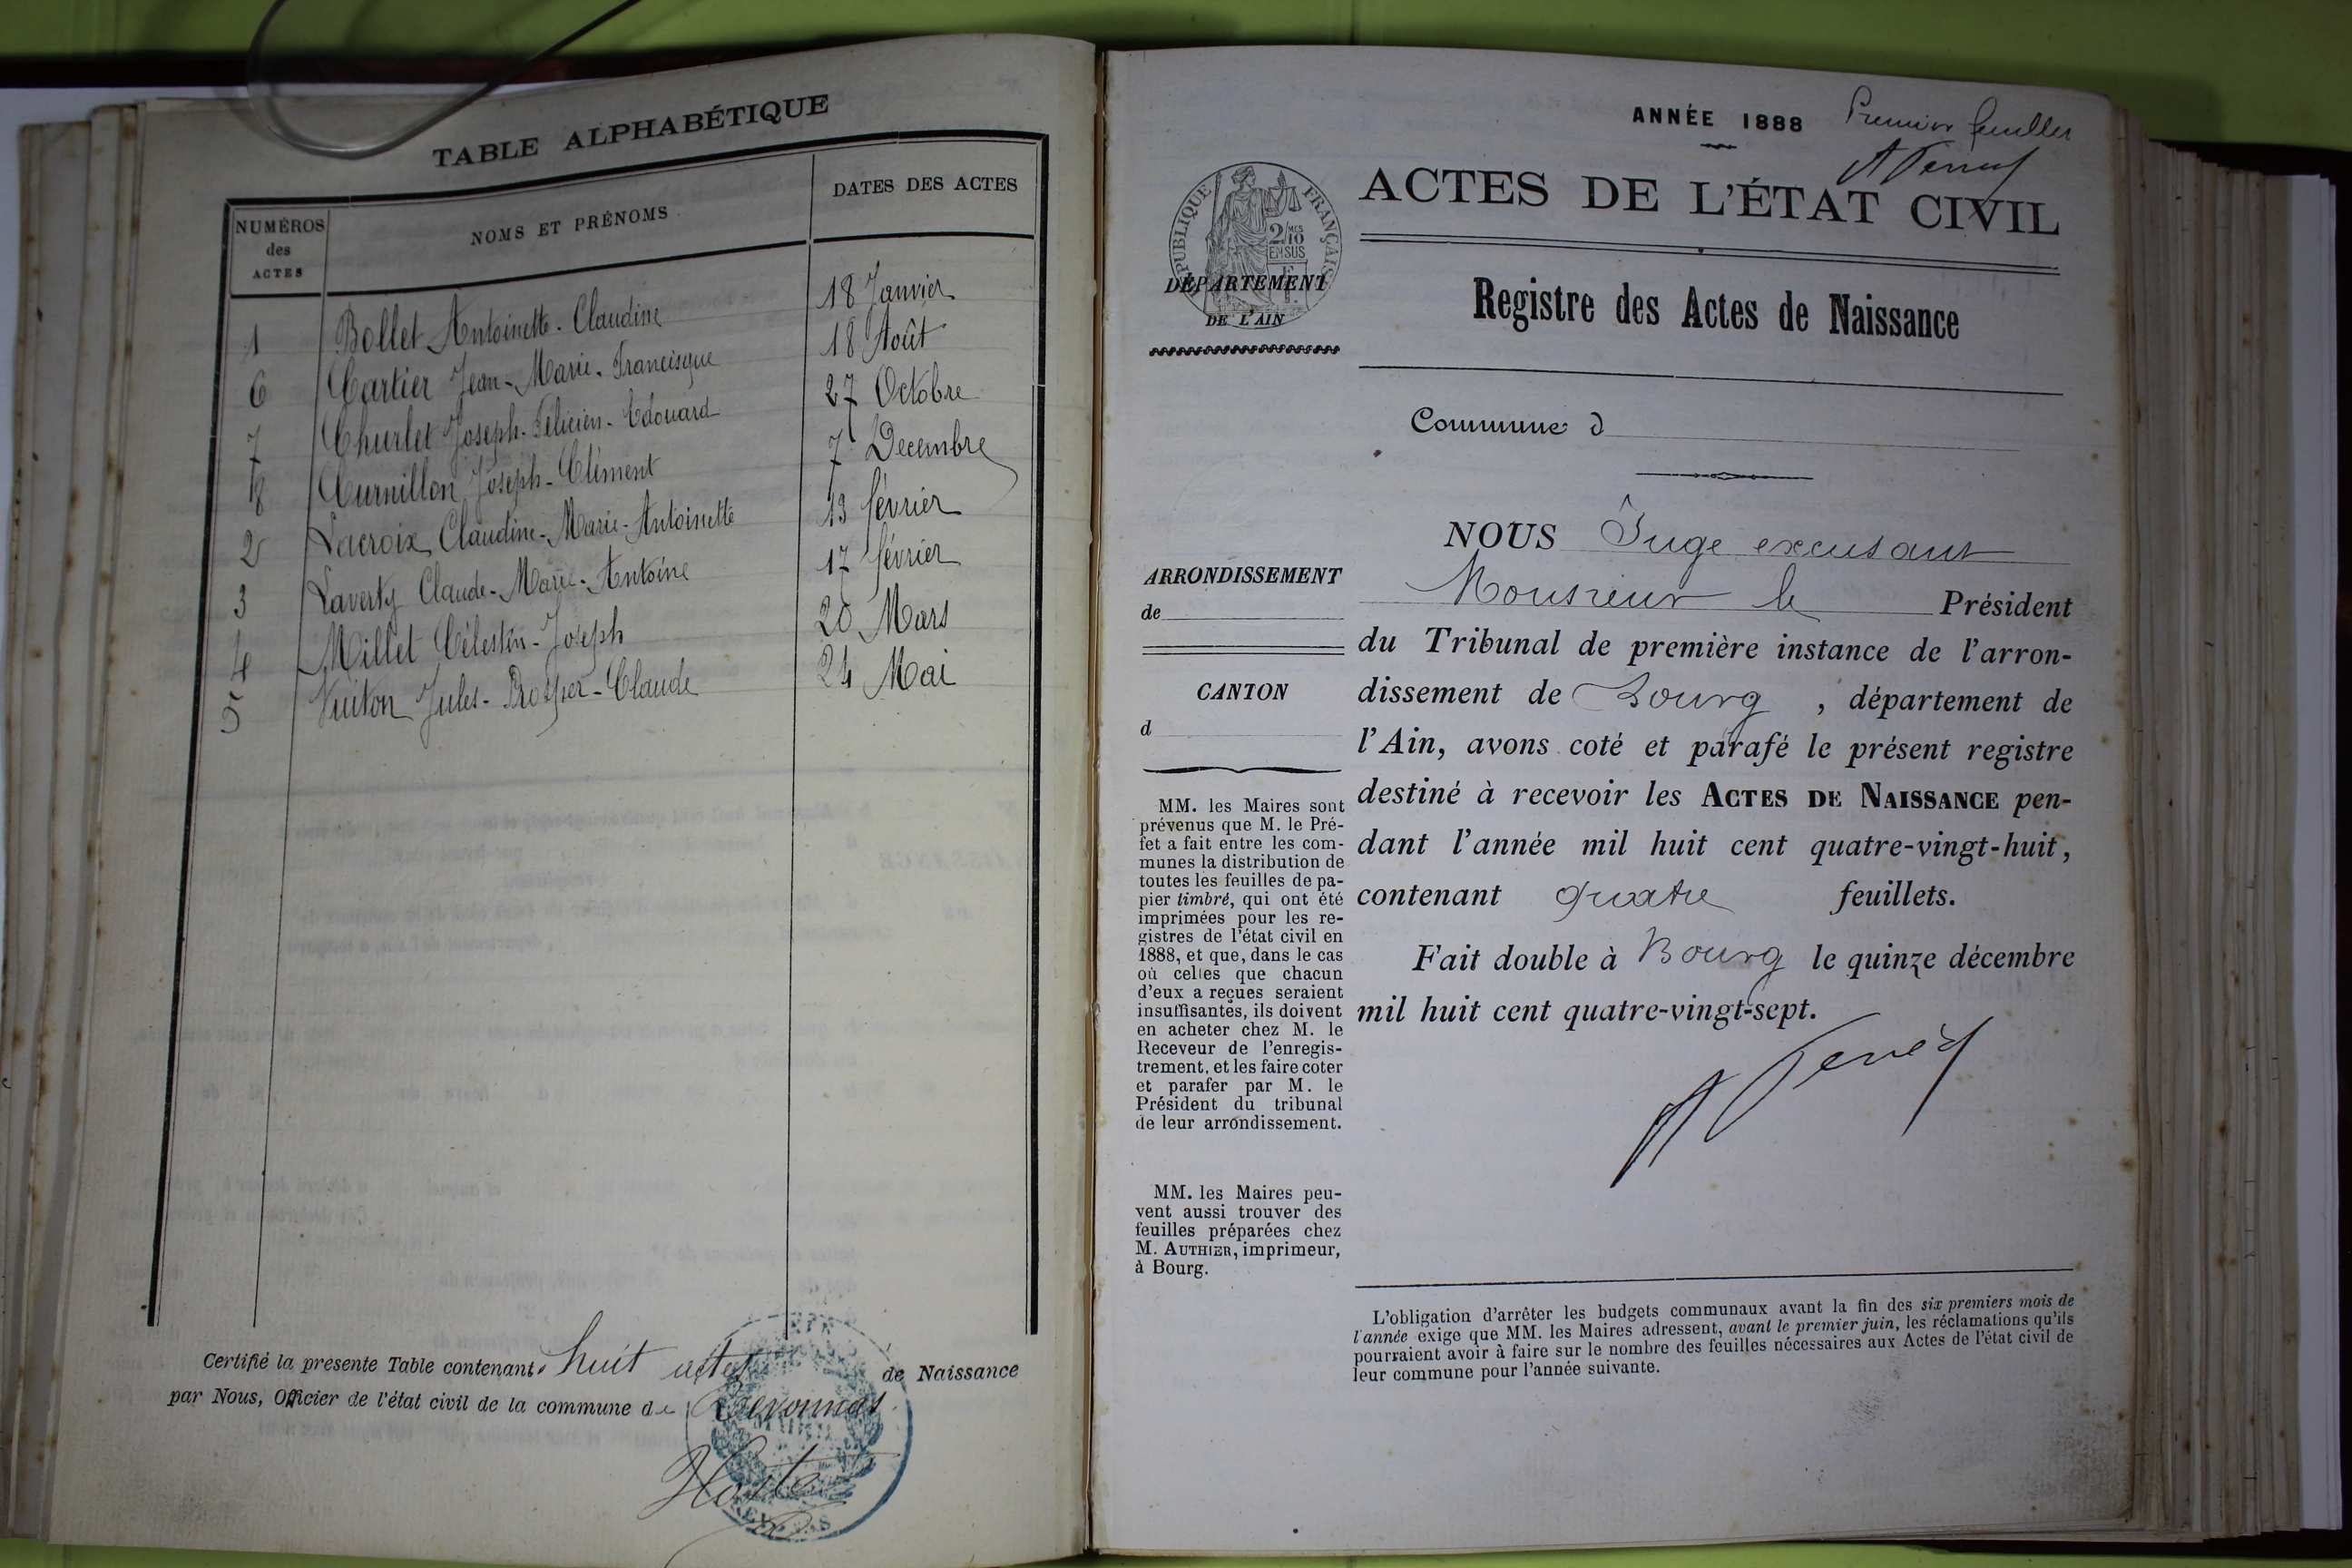 TABLE ALPHABÉTIQUE
NUMÉROS des ACTES | NOMS ET PRÉNOMS | DATES DES ACTES
1 Bollet Antoinette-Claudine 18 Janvier
6 Cartier Jean-Marie-Francisque 18 Août
7 Churlet Joseph-Félicien-Edouard 27 Octobre
8 Curnillon Joseph-Clément 7 Decembre
2 Lacroix Claudine-Marie-Antoinette 13 février
3 Laverty Claude-Marie-Antoine 17 février
4 Millet Célestin-Joseph 20 Mars
5 Vuiton Jules-Prosper-Claude 24 Mai
Certifié la presente Table contenant huit actes de Naissance
par Nous, Officier de l'état civil de la commune de Revonnas
ANNÉE 1888 Premier feuillet
ACTES DE L'ÉTAT CIVIL
RÉPUBLIQUE FRANÇAISE
2/10 EN SUS
DÉPARTEMENT
DE L'AIN
Registre des Actes de Naissance
Commune d
ARRONDISSEMENT
de
CANTON
d
MM. les Maires sont
prévenus que M. le Pré-
fet a fait entre les com-
munes la distribution de
toutes les feuilles de pa-
pier timbré, qui ont été
imprimées pour les re-
gistres de l'état civil en
1888, et que, dans le cas
où celles que chacun
d'eux a reçues seraient
insuffisantes, ils doivent
en acheter chez M. le
Receveur de l'enregis-
trement, et les faire coter
et parafer par M. le
Président du tribunal
de leur arrondissement.
MM. les Maires peu-
vent aussi trouver des
feuilles préparées chez
M. AUTHIER, imprimeur,
à Bourg.
NOUS Juge excusant
Monsieur le Président
du Tribunal de première instance de l'arron-
dissement de Bourg , département de
l'Ain, avons coté et parafé le présent registre
destiné à recevoir les ACTES DE NAISSANCE pen-
dant l'année mil huit cent quatre-vingt-huit,
contenant quatre feuillets.
Fait double à Bourg le quinze décembre
mil huit cent quatre-vingt-sept.
L'obligation d'arrêter les budgets communaux avant la fin des six premiers mois de
l'année exige que MM. les Maires adressent, avant le premier juin, les réclamations qu'ils
pourraient avoir à faire sur le nombre des feuilles nécessaires aux Actes de l'état civil de
leur commune pour l'année suivante.